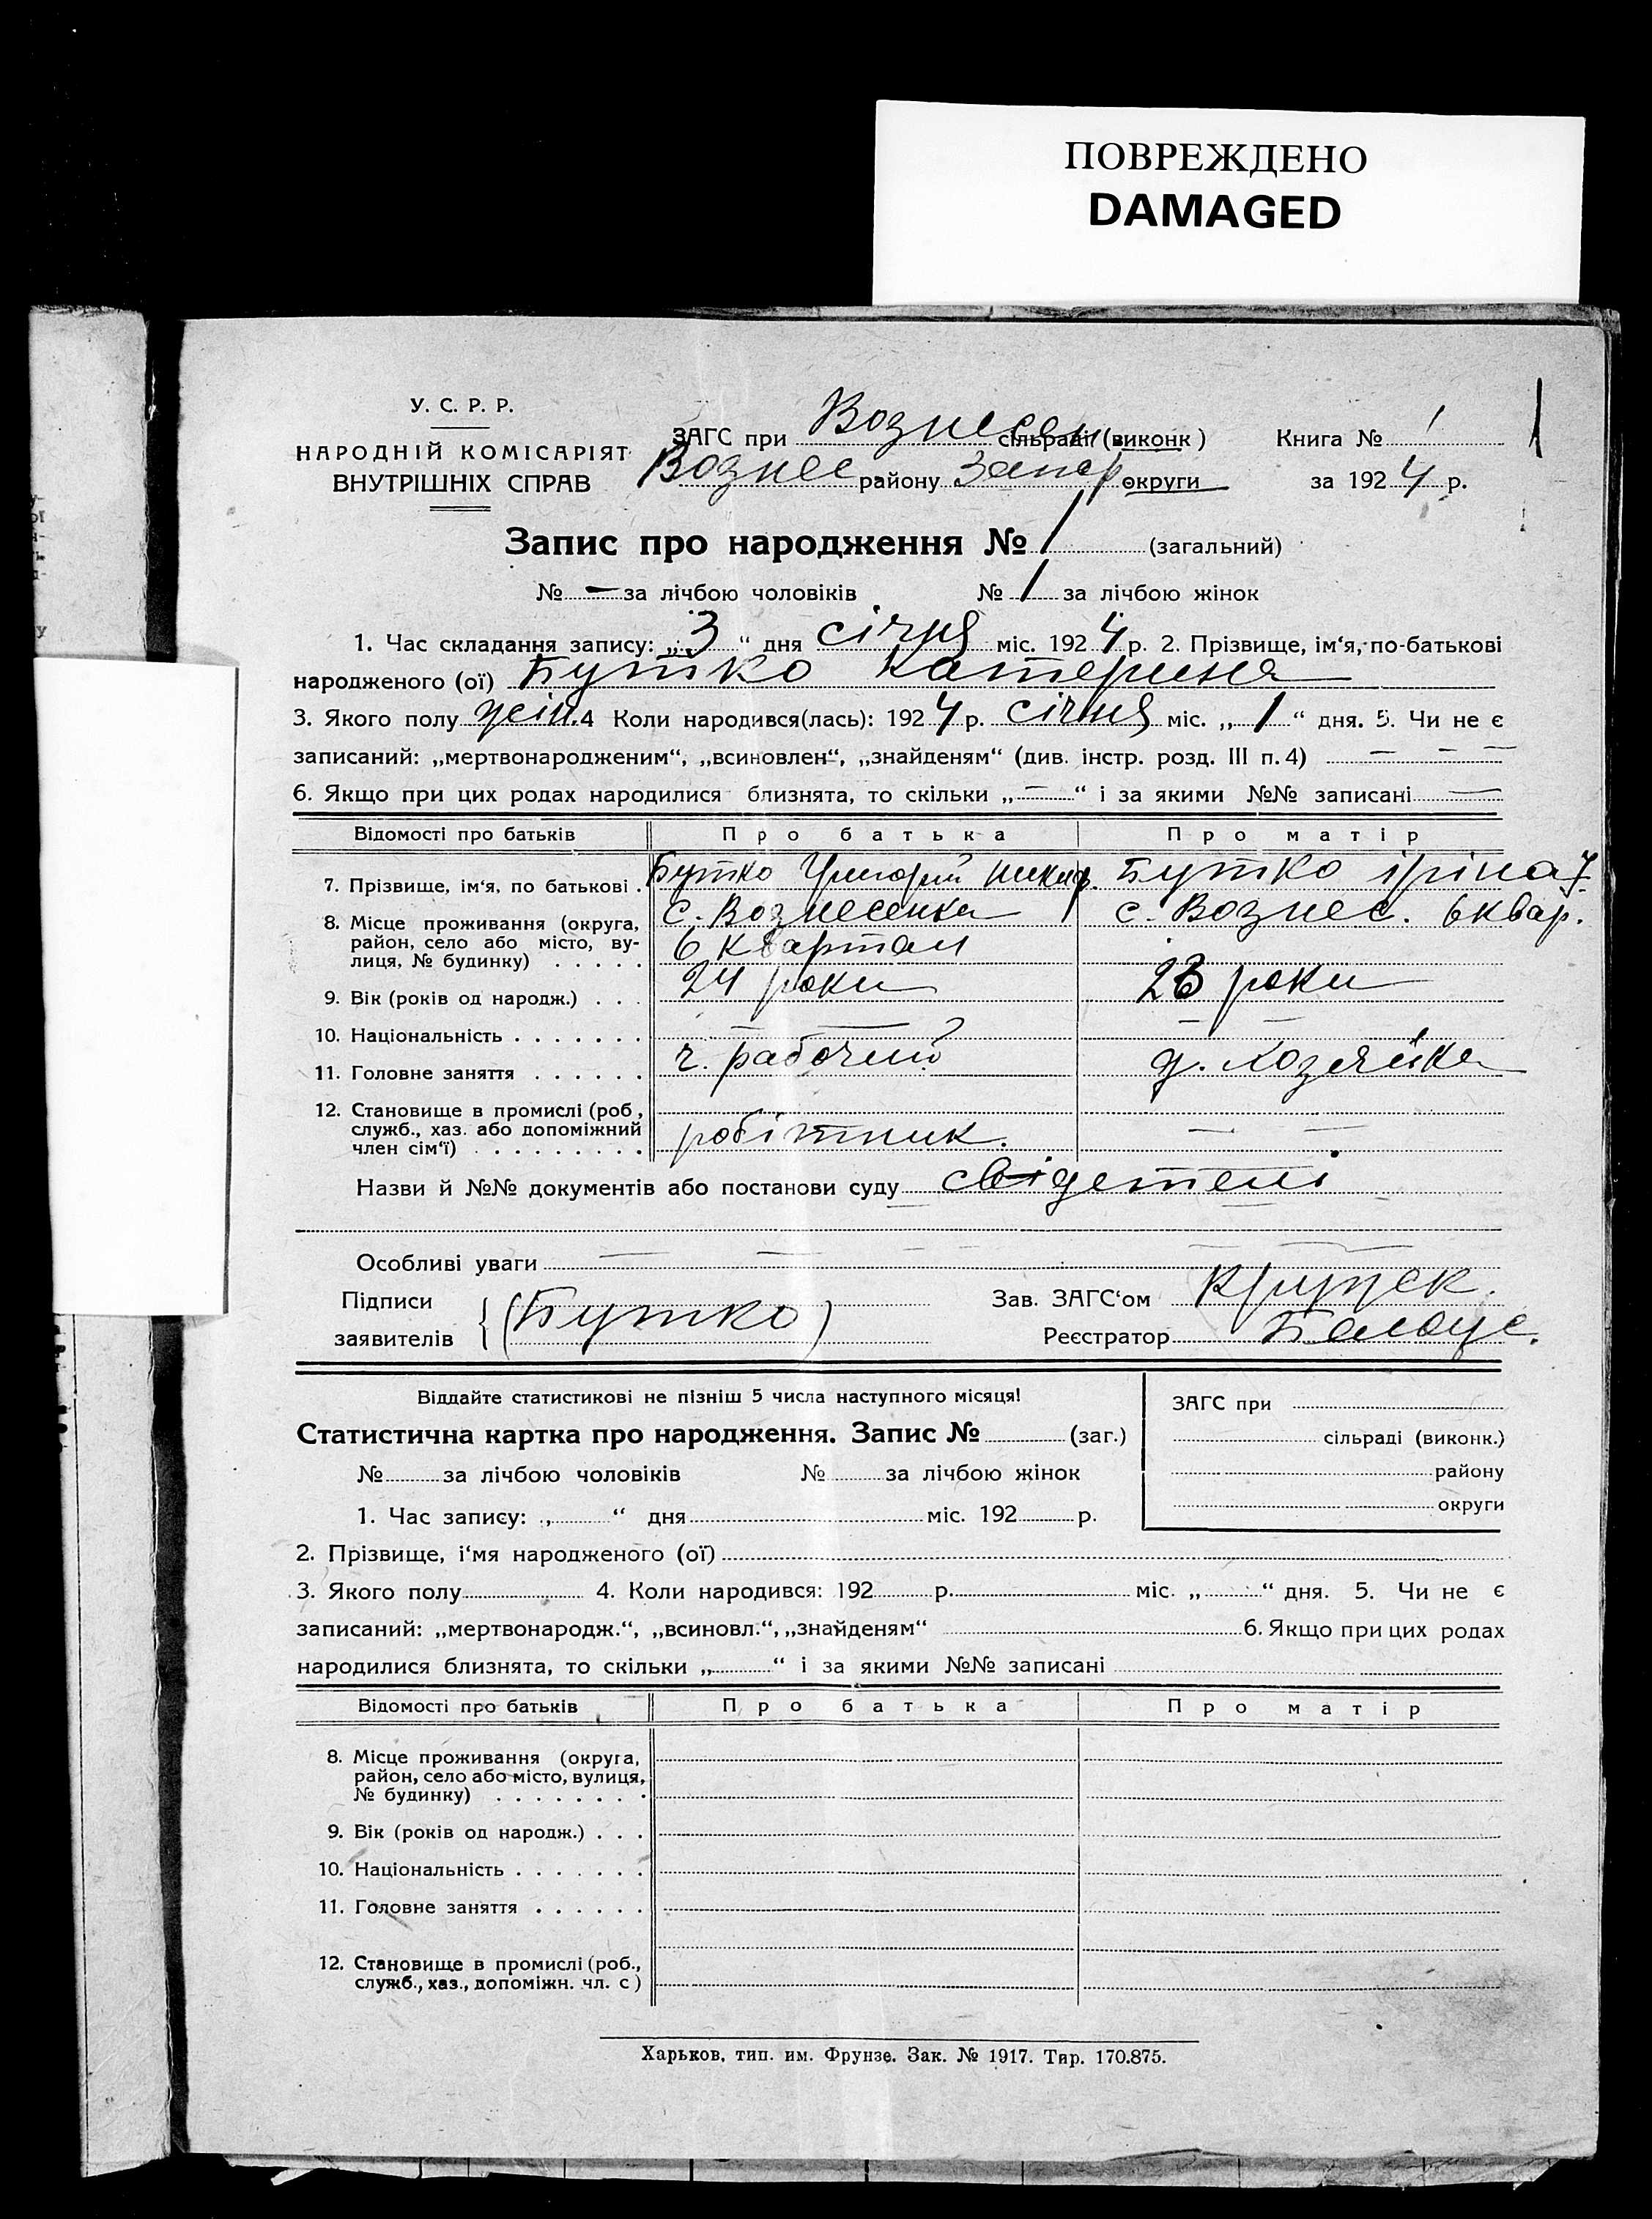 ПОВРЕЖДЕНО
DAMAGED
У. С. Р. Р.
НАРОДНІЙ КОМІСАРІЯТ
ВНУТРІШНІХ СПРАВ
ЗАГС при Вознесен сільраді (виконк)
Вознес району Запор округи
Книга № 1
за 1924 р.
1
Запис про народження № 1 (загальний)
№ — за лічбою чоловіків № 1 за лічбою жінок
1. Час складання запису: „3“ дня січня міс. 1924 р. 2. Прізвище, ім‘я, по-батькові
народженого (ої) Бутко Катерина
3. Якого полу жін. 4 Коли народився(лась): 1924 р. січня міс. „1“ дня. 5. Чи не є
записаний: „мертвонародженим“, „всиновлен“, „знайденям“ (див. інстр. розд. III п. 4) — — —
6. Якщо при цих родах народилися близнята, то скільки „—“ і за якими №№ записані —
Відомості про батьків Про батька Про матір
7. Прізвище, ім‘я, по батькові . Бутко Григорий Никиф. Бутко Іріна
8. Місце проживання (округа, с. Вознесенка с. Вознес. 6 квар.
район, село або місто, ву- 6 квартал
лиця, № будинку) . . . . .
9. Вік (років од народж.) . . . 24 роки 23 роки
10. Національність . . . . . . . — — — —
11. Головне заняття . . . . . . ч. рабочий д. хозяйка
12. Становище в промислі (роб.,
служб., хаз. або допоміжний робітник. — —
член сім‘ї) . . . . . . . . .
Назви й №№ документів або постанови суду свідетелі
Особливі уваги — — — —
Підписи
заявителів { (Бутко)
Зав. ЗАГС‘ом
Реєстратор Балоус.
Віддайте статистикові не пізніш 5 числа наступного місяця!
Статистична картка про народження. Запис № (заг.)
№ за лічбою чоловіків № за лічбою жінок
1. Час запису: „ “ дня міс. 192 р.
ЗАГС при
сільраді (виконк.)
району
округи
2. Прізвище, і‘мя народженого (ої)
3. Якого полу 4. Коли народився: 192 р. міс. „ “ дня. 5. Чи не є
записаний: „мертвонародж.“, „всиновл.“, „знайденям“ 6. Якщо при цих родах
народилися близнята, то скільки „ “ і за якими №№ записані
Відомості про батьків Про батька Про матір
8. Місце проживання (округа,
район, село або місто, вулиця,
№ будинку) . . . . . . . .
9. Вік (років од народж.) . . .
10. Національність . . . . . . .
11. Головне заняття . . . . . .
12. Становище в промислі (роб.,
служб., хаз., допоміжн. чл. с)
Харьков, тип. им. Фрунзе. Зак. № 1917. Тир. 170.875.